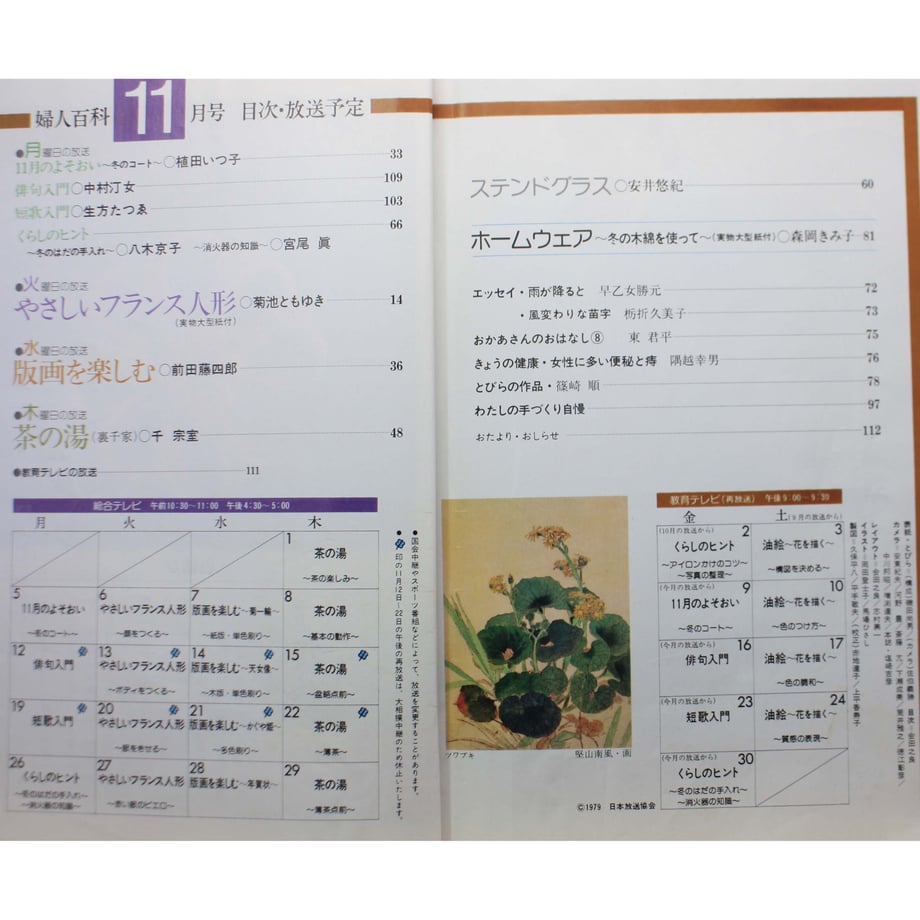 婦人百科 11月号 目次・放送予定
●月曜日の放送
11月のよそおい〜冬のコート〜○植田いつ子 33
俳句入門○中村汀女 109
短歌入門○生方たつゑ 103
くらしのヒント 66
〜冬のはだの手入れ〜○八木京子 〜消火器の知識〜○宮尾 眞
●火曜日の放送
やさしいフランス人形○菊池ともゆき 14
(実物大型紙付)
●水曜日の放送
版画を楽しむ○前田藤四郎 36
●木曜日の放送
茶の湯(裏千家)○千 宗室 48
●教育テレビの放送 111
総合テレビ 午前10:30〜11:00 午後4:30〜5:00
月 火 水 木
1 茶の湯
〜茶の楽しみ〜
5 11月のよそおい
〜冬のコート〜
6 やさしいフランス人形
〜顔をつくる〜
7 版画を楽しむ〜菊一輪〜
〜紙版・単色刷り〜
8 茶の湯
〜基本の動作〜
12 俳句入門
13 やさしいフランス人形
〜ボディをつくる〜
14 版画を楽しむ〜天女像〜
〜木版・単色刷り〜
15 茶の湯
〜盆略点前〜
19 短歌入門
20 やさしいフランス人形
〜服をきせる〜
21 版画を楽しむ〜かぐや姫〜
〜多色刷り〜
22 茶の湯
〜薄茶〜
26 くらしのヒント
〜冬のはだの手入れ〜
〜消火器の知識〜
27 やさしいフランス人形
〜赤い服のピエロ〜
28 版画を楽しむ〜年賀状〜
29 茶の湯
〜薄茶点前〜
●国会中継やスポーツ番組などによって、放送を変更することがあります。
●印の11月12日〜22日の午後の再放送は、大相撲中継のため休止いたします。
ステンドグラス○安井悠紀 60
ホームウェア〜冬の木綿を使って〜(実物大型紙付)○森岡きみ子 81
エッセイ・雨が降ると 早乙女勝元 72
・風変わりな苗字 栃折久美子 73
おかあさんのおはなし⑧ 東 君平 75
きょうの健康・女性に多い便秘と痔 隅越幸男 76
とびらの作品・篠崎 順 78
わたしの手づくり自慢 97
おたより・おしらせ 112
ツワブキ 堅山南風・画
教育テレビ(再放送) 午後9:00〜9:30
金 土(9月の放送から)
(10月の放送から) 2
くらしのヒント
〜アイロンかけのコツ〜
〜写真の整理〜
3 油絵〜花を描く〜
〜構図を決める〜
(今月の放送から) 9
11月のよそおい
〜冬のコート〜
10 油絵〜花を描く〜
〜色のつけ方〜
(今月の放送から) 16
俳句入門
17 油絵〜花を描く〜
〜色の調和〜
(今月の放送から) 23
短歌入門
24 油絵〜花を描く〜
〜質感の表現〜
(今月の放送から) 30
くらしのヒント
〜冬のはだの手入れ〜
〜消火器の知識〜
©1979 日本放送協会